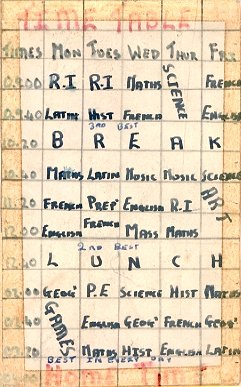 TIME TABLE
TIMES MON TUES WED THUR FRI
0900 R.I R.I MATHS SCIENCE FRENCH
09.40 LATIN HIST FRENCH ENGLISH
3RD BEST
10.20 B R E A K
10.40 MATHS LATIN MUSIC MUSIC SCIENCE
11.20 FRENCH PREP ENGLISH R.I. ART
12.00 ENGLISH FRENCH MASS MATHS
2ND BEST
12.40 L U N C H
GEOG' P.E SCIENCE HIST MATHS
GAMES ENGLISH GEOG' FRENCH GEOG'
MATHS HIST ENGLISH LATIN
BEST IN EVERY DAY